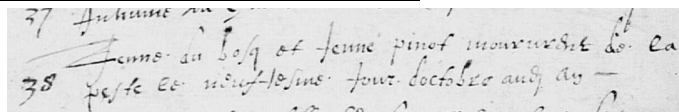 37
Jenne du bosq et Jenne pinot moururent de la
38 peste le neufiesme Jour doctobre aud an